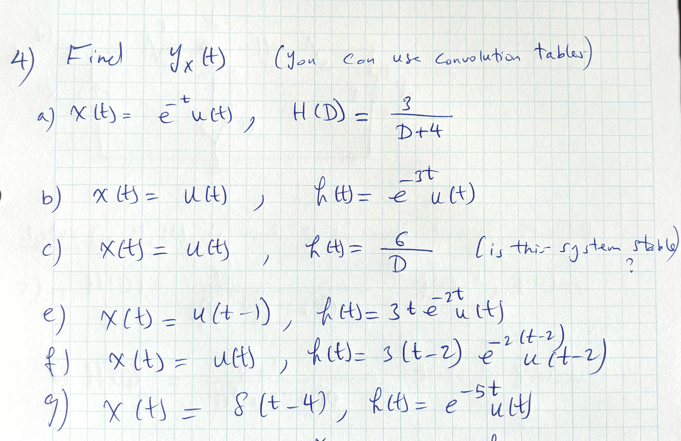 4) Find y_x(t) (you can use convolution tables)
a) x(t) = e^-t u(t), H(D) = 3/(D+4)
b) x(t) = u(t), h(t) = e^-3t u(t)
c) x(t) = u(t), h(t) = 6/D (is this system stable)?
e) x(t) = u(t-1), h(t) = 3 t e^-2t u(t)
f) x(t) = u(t), h(t) = 3(t-2) e^-2(t-2) u(t-2)
g) x(t) = δ(t-4), h(t) = e^-5t u(t)